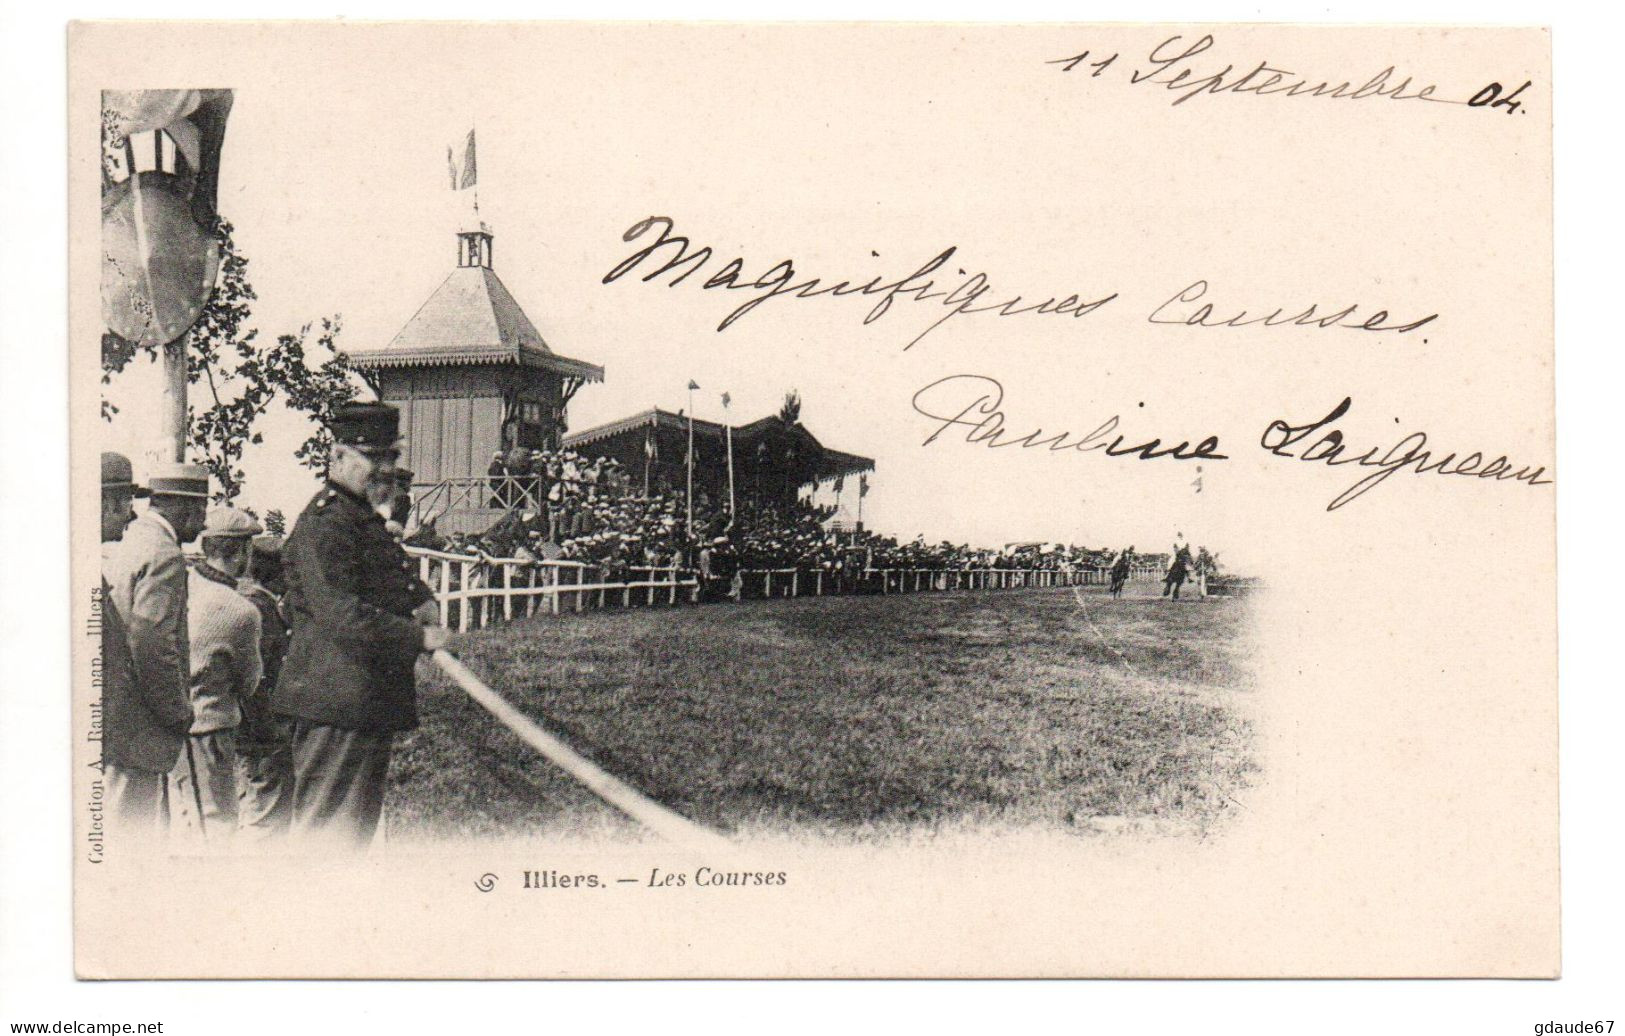 11 Septembre 04.
Magnifiques Courses.
Pauline Laigneau
Collection A. Raut, pap., Illiers
Illiers. — Les Courses
www.delcampe.net
gdaude67